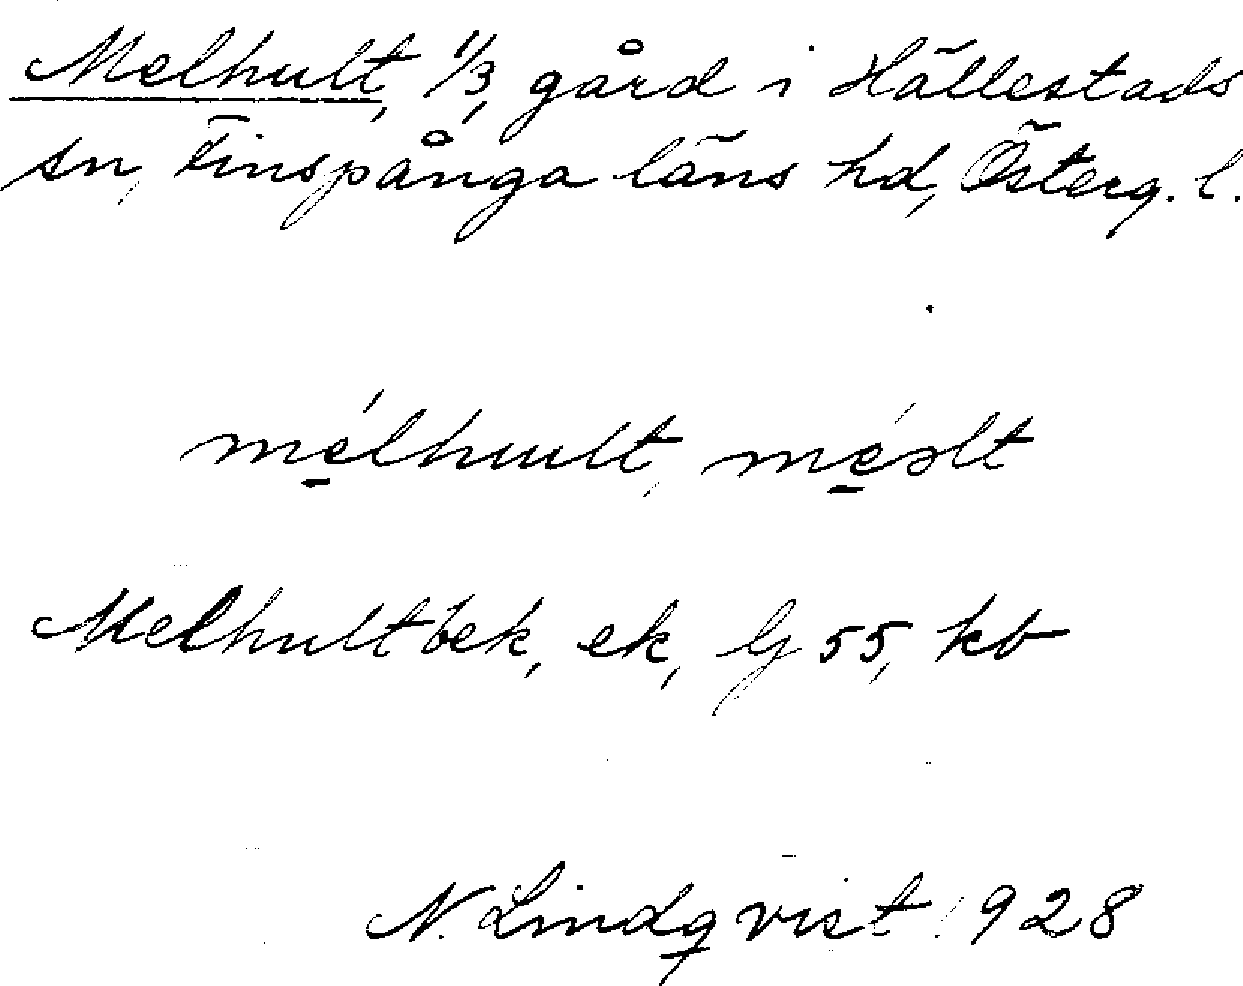 Melhult, 1/3, gård i Hällestads
sn, Finspånga läns hd, Österg. l.
mélhult, méǝlt
Melhult bek, ek, Gj 55, kb
N. Lindqvist 1928